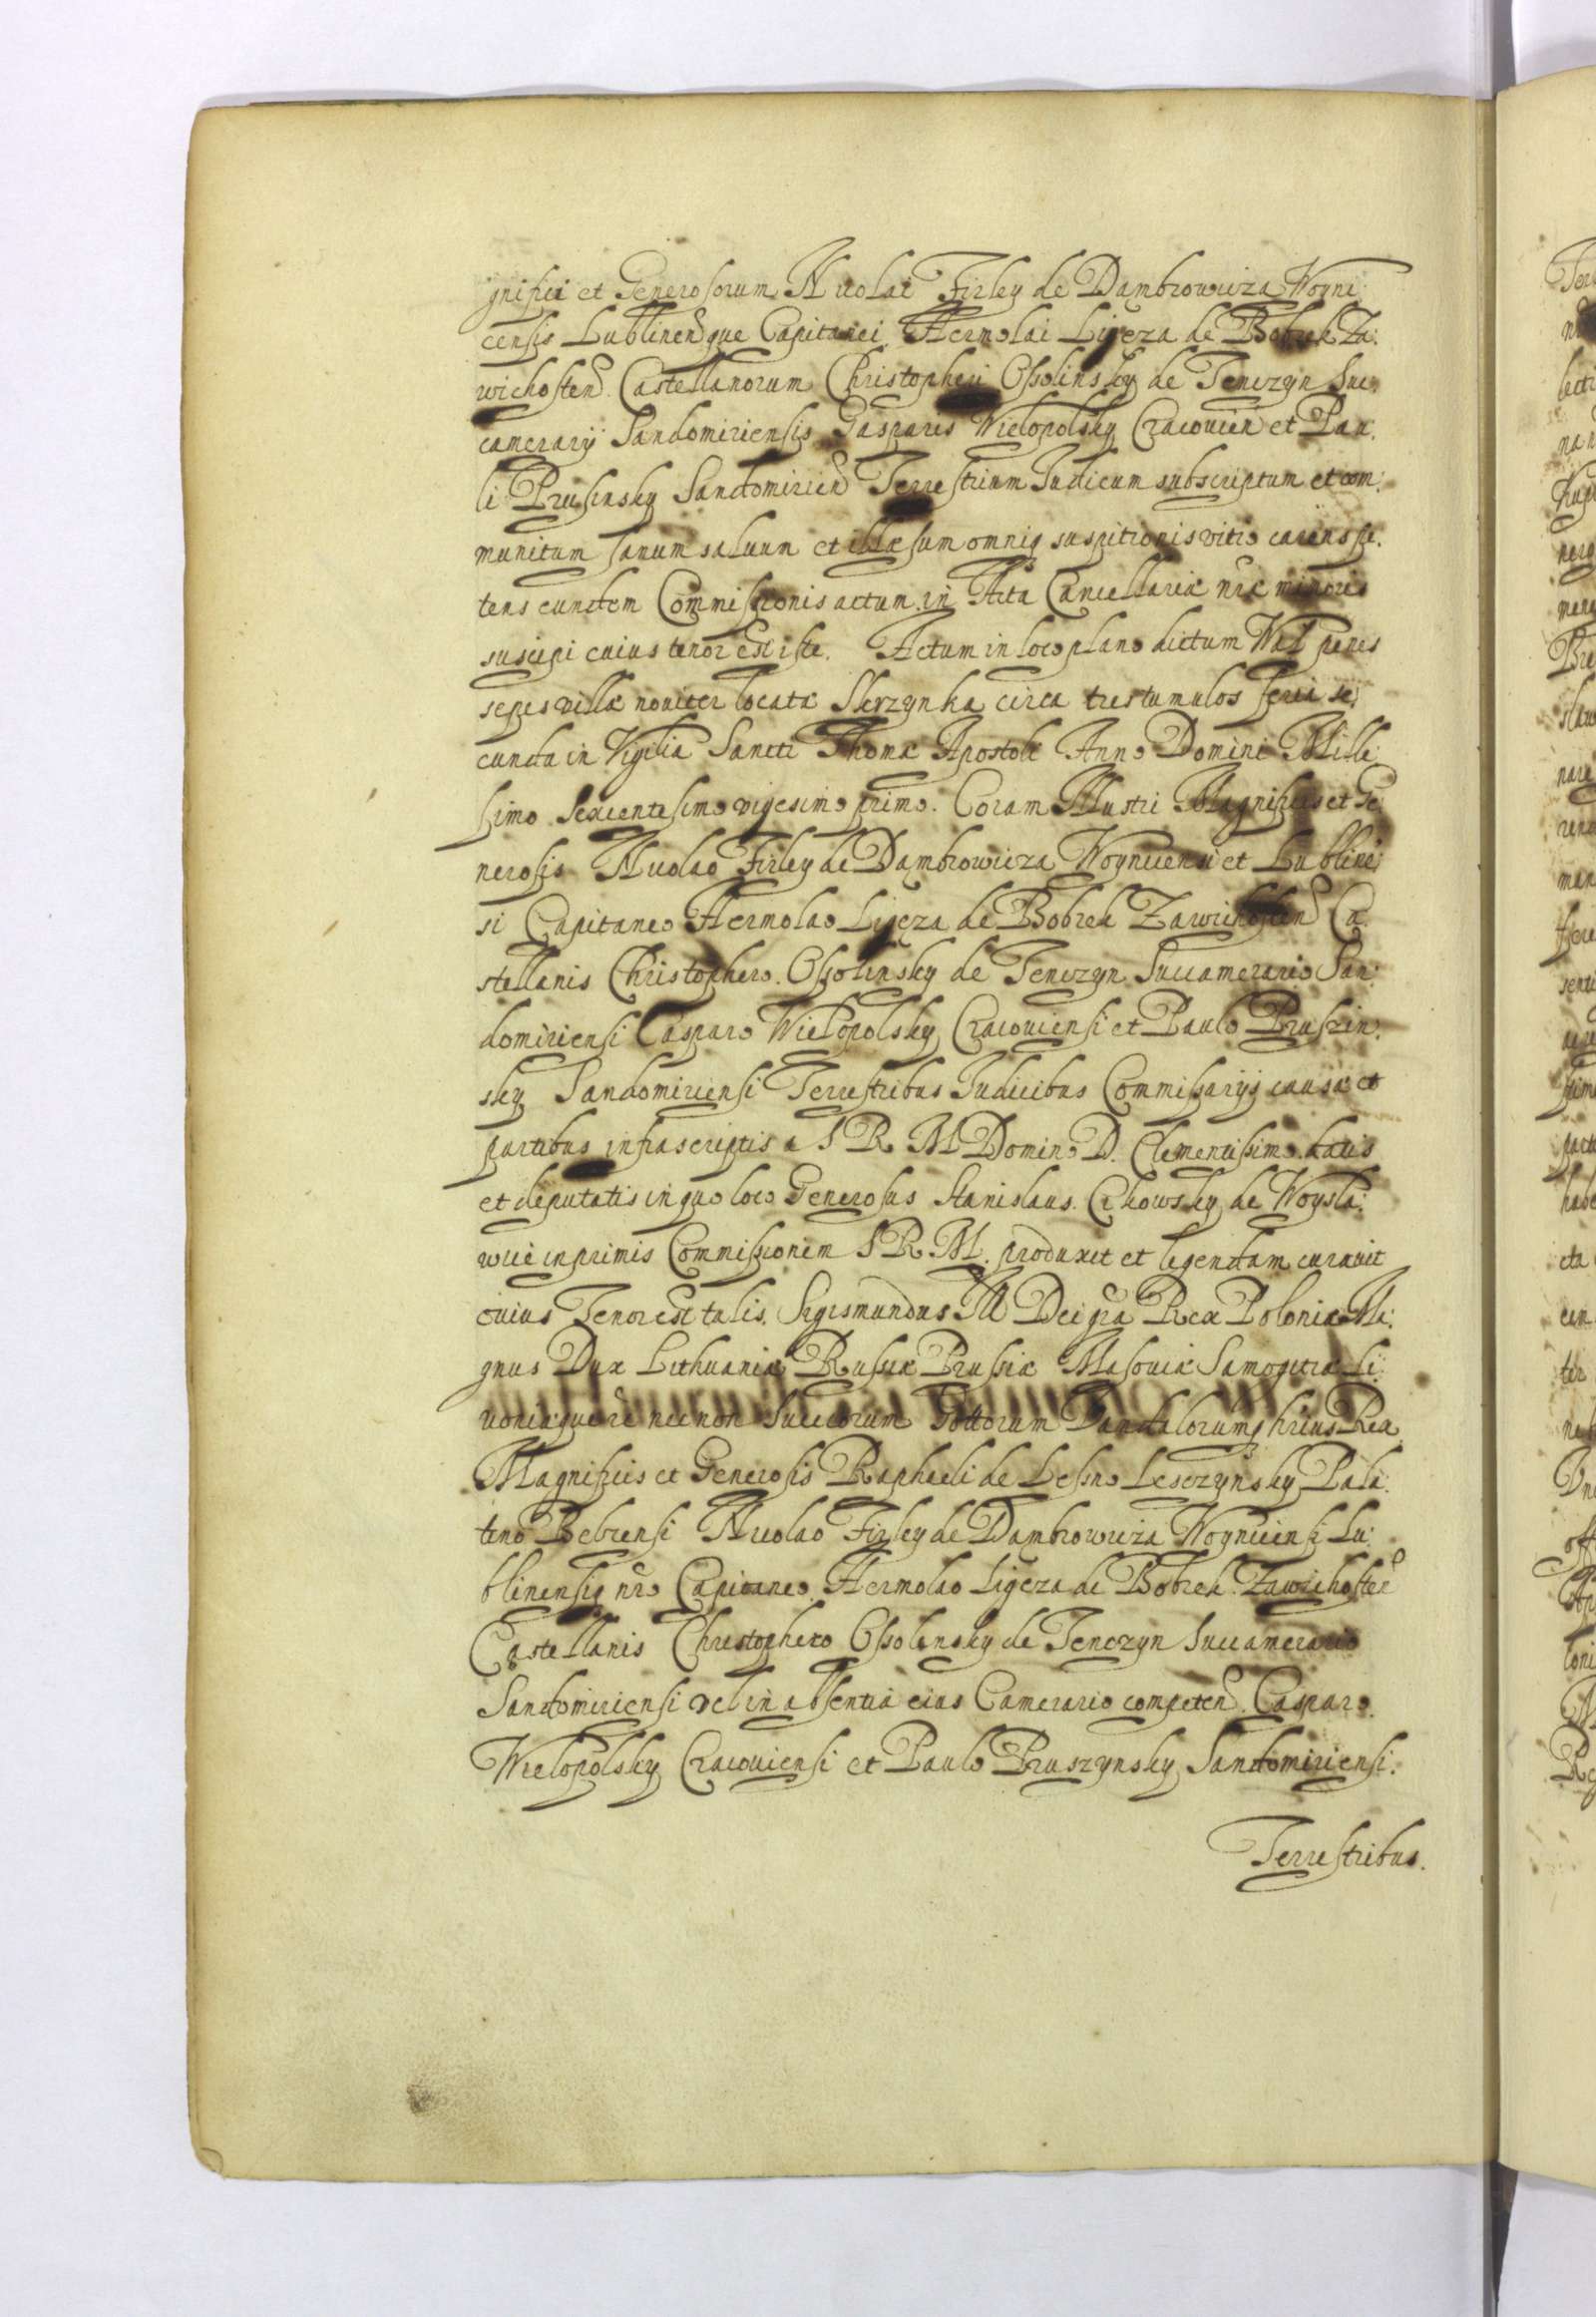 gnifici et Generosorum Nicolai Firley de Dambrowicza Woyni:
censis Lublinensque Capitanei Hermolai Ligeza de Bobrek Za:
wichosten. Castellanorum Christopheri Ossolinsky de Tenczyn Suc
camerarij Sandomiriensis Gasparis Wielopolsky Cracouien et Pau:
li Prusinsky Sandomirien Terrestrium Iudicum subscriptum et com:
munitum sanum saluum et illæsum omniq suspitionis vitio carens pe:
tens eundem Commissionis actum in Acta Cancellariæ nræ minoris
suscipi cuius tenor est iste. Actum in loco plano dictum Wal penes
sepes villæ nouiter locatæ Skrzynka circa tres tumulos feria se:
cunda in Vigilia Sancti Thomæ Apostoli Anno Domini Mille
simo Sexcentesimo vigesimo primo. Coram Illustri Magnificis et Ge
nerosis Nicolao Firley de Dambrowicza Woynicensi et Lublinē
si Capitaneo Hermolao Ligeza de Bobrek Zawichosten Ca:
stellanis Christophero Ossolinsky de Tenczyn Succamerario San:
domiriensi Casparo Wielopolsky Cracouiensi et Paulo Pruszin:
sky Sandomiriensi Terrestribus Iudicibus Commissarijs causæ et
partibus infrascriptis a S R M Domino D. Clementissimo datis
et deputatis in quo loco Generosus Stanislaus Ckowsky de Woysla:
wice inprimis Commissionem S R M. produxit et legendam curauit
cuius Tenor est talis. Sigismundus III Dei gra Rex Poloniæ Ma:
gnus Dux Lithuaniæ Russiæ Prussiæ Masouiæ Samogitiæ Li:
uoniæque necnon Suecorum Gottorum Vandalorumq hrius Rex
Magnificis et Generosis Raphaeli de Lesno Lesczynsky Pala:
tino Belzensi Nicolao Firley de Dambrowicza Woynicensi Lu:
blinensiq nro Capitaneo Hermolao Ligeza de Bobrek Zawichosten
Castellanis Christophero Ossolinsky de Tenczyn Succamerario
Sandomiriensi vel in absentia eius Camerario competen. Casparo
Wielopolsky Cracouiensi et Paulo Pruszynsky Sandomiriensi.
Terrestribus.